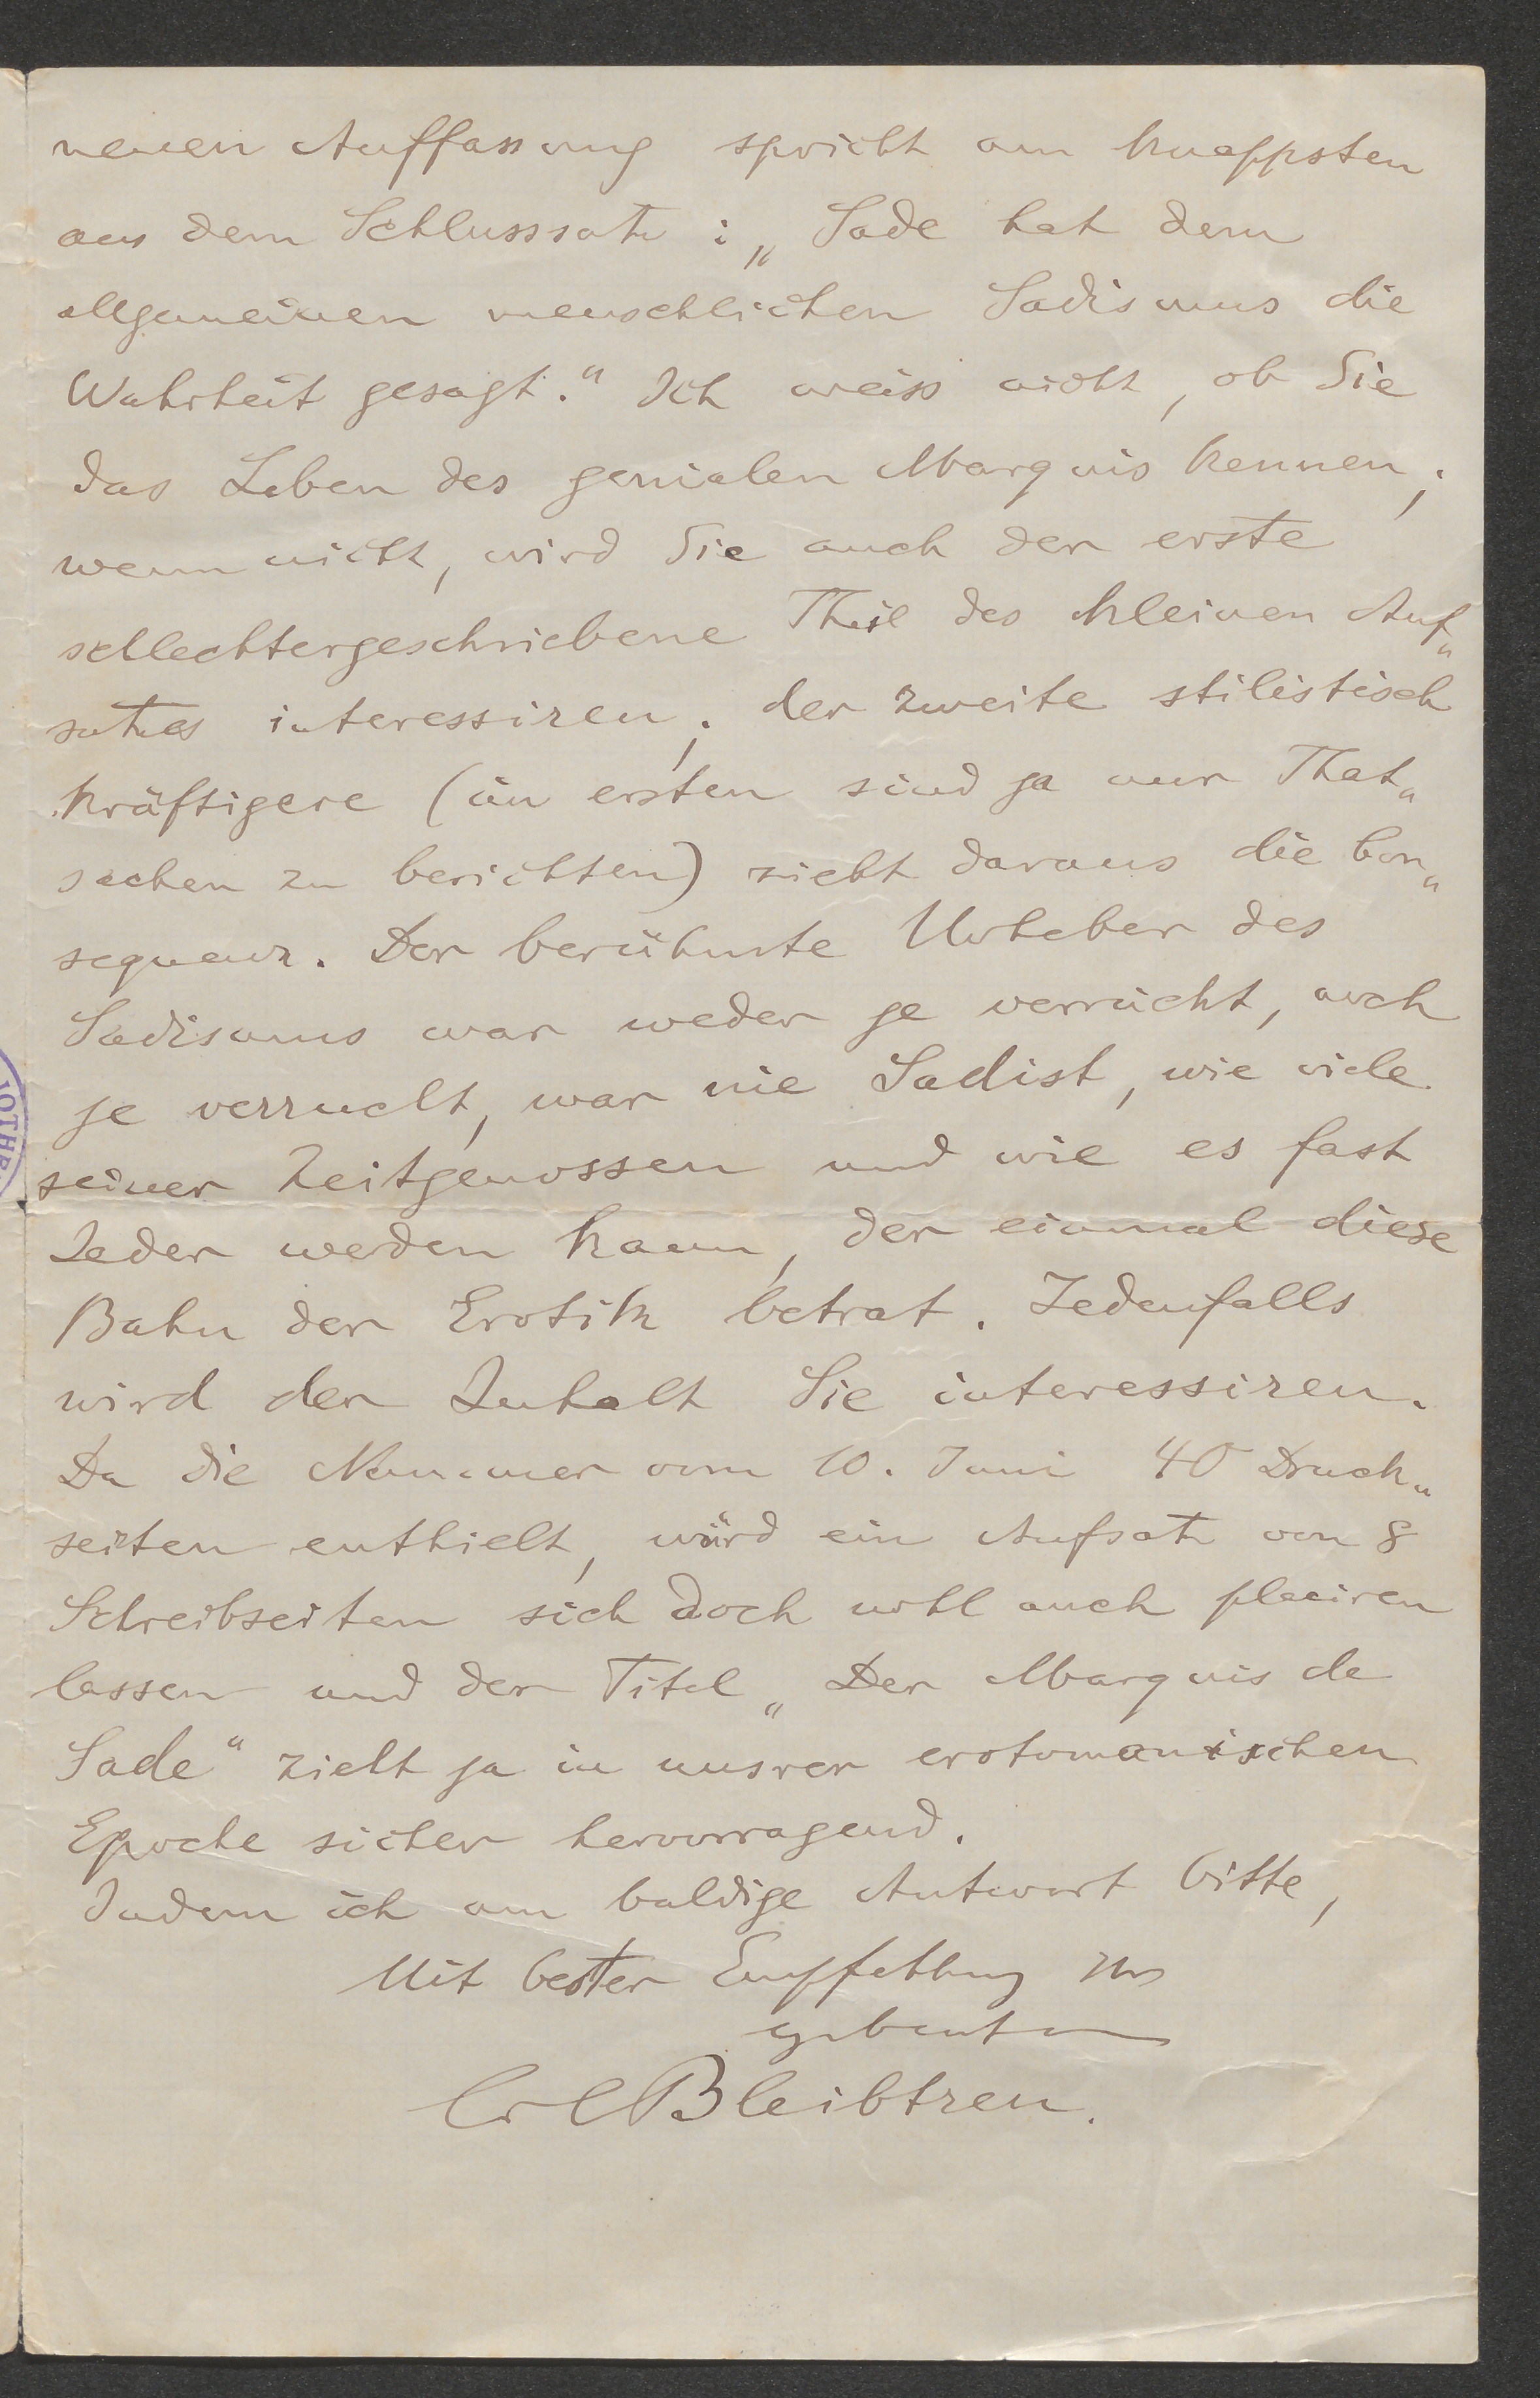 neuen Auffassung spricht am knappsten
aus dem Schlusssatz: „Sade hat dem
allgemeinen menschlichen Sadismus die
Wahrheit gesagt.“ Ich weiss nicht, ob Sie
das Leben des genialen Marquis kennen;
wenn nicht, wird Sie auch der erste
schlechtergeschriebene Theil des kleinen Auf„
satzes interessiren; der zweite stilistisch
kräftigere (im ersten sind ja nur That„
sachen zu berichten) zieht daraus die Con„
sequenz. Der berühmte Urheber des
Sadismus war weder je verrückt, noch
je verrucht, war nie Sadist, wie viele
seiner Zeitgenossen und wie es fast
Jeder werden kann, der einmal diese
Bahn der Erotik betrat. Jedenfalls
wird der Inhalt Sie interessiren.
Da die Nummer vom 10. Juni 40 Druck„
seiten enthielt, würd ein Aufsatz von 8
Schreibseiten sich doch wohl auch placiren
lassen und der Titel „Der Marquis de
Sade“ zielt ja in unsrer erotomanischen
Epoche sicher hervorragend.
Indem ich um baldige Antwort bitte,
Mit bester Empfehlung Ihr
Bleibtreu.
IOTHE